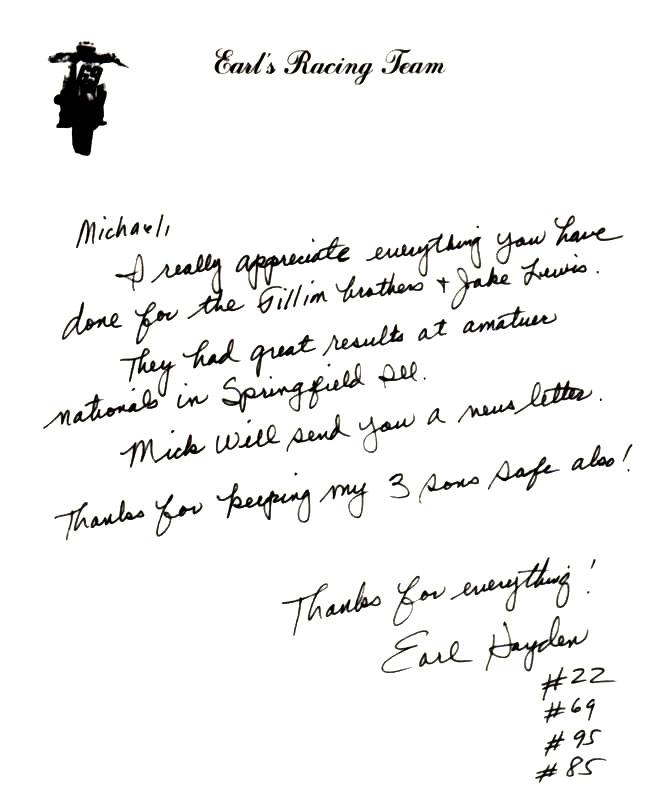 Earl's Racing Team
69
Michael,
I really appreciate everything you have
done for the Gillim brothers + Jake Lewis.
They had great results at amatuer
nationals in Springfield Ill.
Mick will send you a news letter.
Thanks for keeping my 3 sons safe also!
Thanks for everything!
Earl Hayden
#22
#69
#95
#85